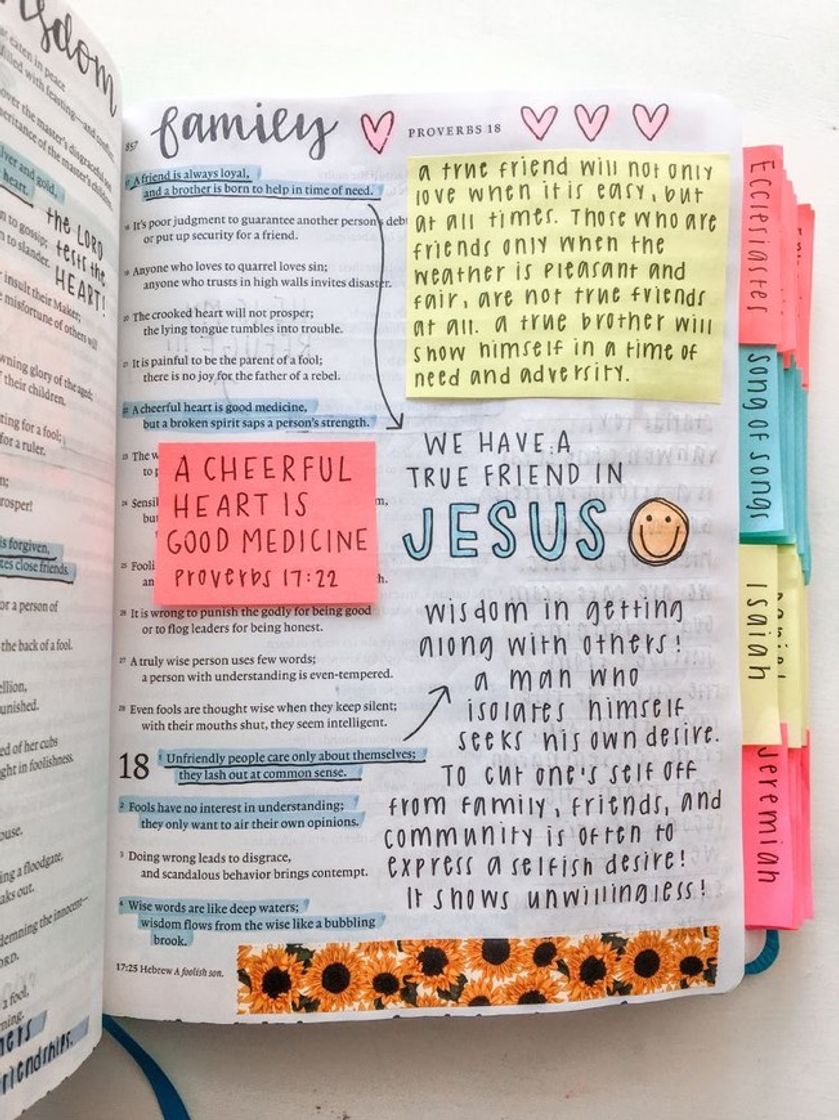 wisdom
eaten in peace
filled with feasting—and conflict
over the master's disgraceful son
inheritance of the master's children.
silver and gold,
heart.
the LORD
tests the
HEART!
to gossip;
to slander.
insult their Maker;
misfortune of others will
crowning glory of the aged;
their children.
for a fool;
for a ruler.
prosper!
is forgiven,
close friends.
or a person of
the back of a fool.
of her cubs
in foolishness.
a floodgate,
a fool,
friendships.
857
family
PROVERBS 18
17 A friend is always loyal,
and a brother is born to help in time of need.
18 It's poor judgment to guarantee another person's debt
or put up security for a friend.
19 Anyone who loves to quarrel loves sin;
anyone who trusts in high walls invites disaster.
20 The crooked heart will not prosper;
the lying tongue tumbles into trouble.
21 It is painful to be the parent of a fool;
there is no joy for the father of a rebel.
22 A cheerful heart is good medicine,
but a broken spirit saps a person's strength.
23 The
to
24
25
26 It is wrong to punish the godly for being good
or to flog leaders for being honest.
27 A truly wise person uses few words;
a person with understanding is even-tempered.
28 Even fools are thought wise when they keep silent;
with their mouths shut, they seem intelligent.
18 1 Unfriendly people care only about themselves;
they lash out at common sense.
2 Fools have no interest in understanding;
they only want to air their own opinions.
3 Doing wrong leads to disgrace,
and scandalous behavior brings contempt.
4 Wise words are like deep waters;
wisdom flows from the wise like a bubbling
brook.
17:25 Hebrew A foolish son.
A CHEERFUL
HEART IS
GOOD MEDICINE
Proverbs 17:22
a true friend will not only
love when it is easy, but
at all times. Those who are
friends only when the
weather is pleasant and
fair, are not true friends
at all. a true brother will
show himself in a time of
need and adversity.
WE HAVE A
TRUE FRIEND IN
JESUS
wisdom in getting
along with others!
a man who
isolates himself
seeks his own desire.
To cut one's self off
from family, friends, and
community is often to
express a selfish desire!
It shows unwillingless!
Ecclesiastes
song of songs
Isaiah
Jeremiah